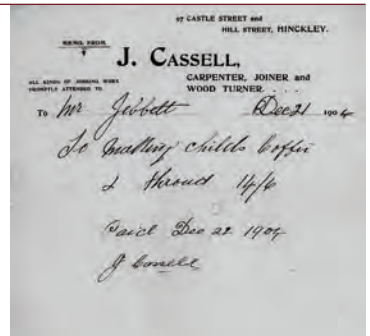 97 CASTLE STREET and
HILL STREET, HINCKLEY.
MEMO. FROM
J. CASSELL,
ALL KINDS OF JOBBING WORK
PROMPTLY ATTENDED TO.
CARPENTER, JOINER and
WOOD TURNER. . . .
To Mr Jebbett Dec 21 1904
To Making Childs Coffin
& Shroud 14/6
Paid Dec 22 1904
J Cassell